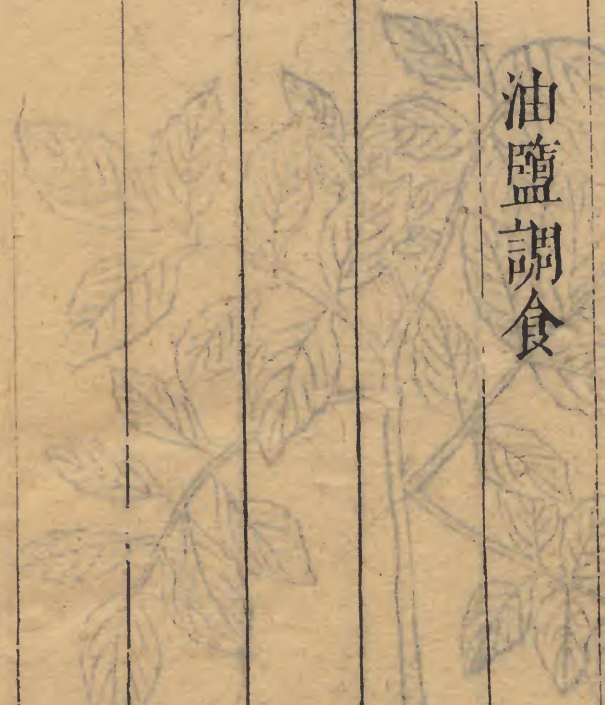 油鹽調食